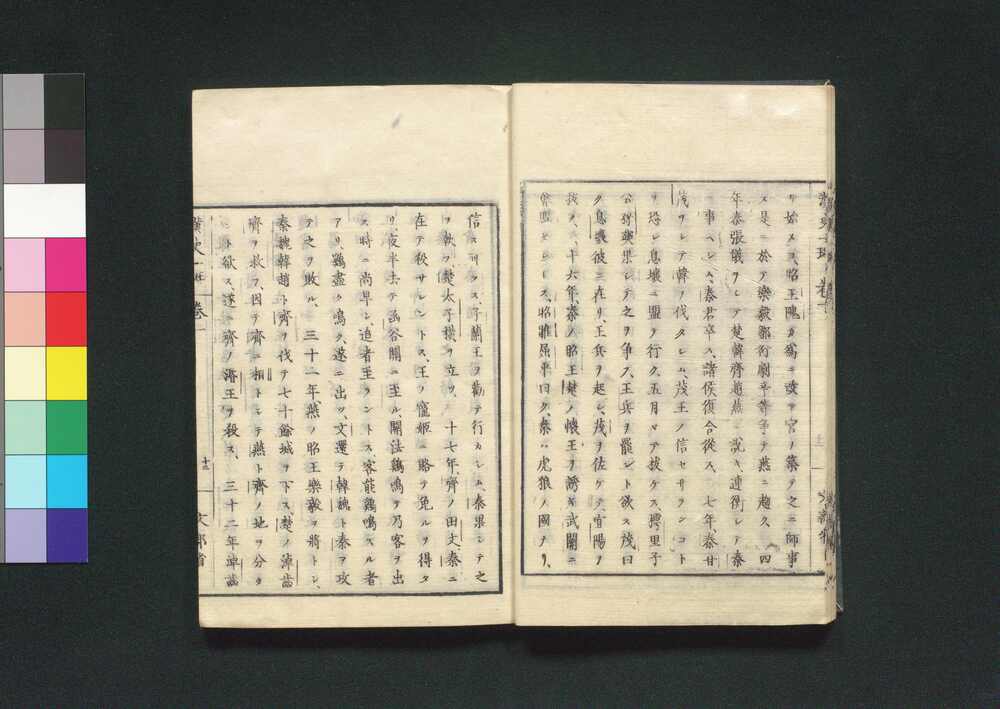 ヲ始メ爲ス、昭王隗カ爲ニ改テ宮ノ築ヲ之ニ師事
ス是ニ於テ樂毅鄒衍劇辛等爭テ燕ニ趨久 四
年秦張儀ヲシテ楚韓齊趙燕ニ說キ連衡シテ秦
ニ事ヘシム秦君卒ス、諸侯復合從ス、 七年、秦甘
茂ヲシテ韓ノ伐タシム、茂王ノ信セサランコト
ヲ恐レ息壤ニ盟ヲ行ク、五月ヾア拔ケス樗里子
公孫奭果シテ之ヲ爭フ、王兵ヲ罷シト欲ス茂曰
ク息壤彼ニ在リ王兵ヲ起シ、茂ヲ佐ケテ宜陽ヲ
拔ス、 十六年、秦ノ昭王楚ノ懷王ヲ武關ニ
昭睢屈平曰ク、秦ハ虎狼ノ國ナリ、
信スヘカラス、子蘭王ヲ勸テ行カシム、秦果シテ之
ヲ執フ、楚太子橫ヲ立ツ、 十七年、齊ノ田文秦ニ
在テ殺サレントス、王ノ寵姬ニ賂テ免ルヲ得タ
リ、夜半去テ函谷關ニ至ル、關法鷄鳴テ乃客ヲ出
ス時ニ尚早シ、追者至ラントス客能鷄鳴スル者
アリ、鷄盡ク鳴ク、遂ニ出ツ、文還テ韓魏ト秦ヲ攻
テ之ヲ敗ル、 三十二年燕ノ昭王樂毅ヲ將トシ、
秦魏韓趙ト齊ヲ伐テ七十餘城ヲ下ス、楚ノ淖齒
齊ヲ救フ、因テ齊ニ相トシテ燕ト齊ノ地ヲ分タ
ント欲ス、遂ニ齊ノ湣王ヲ殺ス、 三十二年淖齒
漢史一班 卷一 十三 文部省